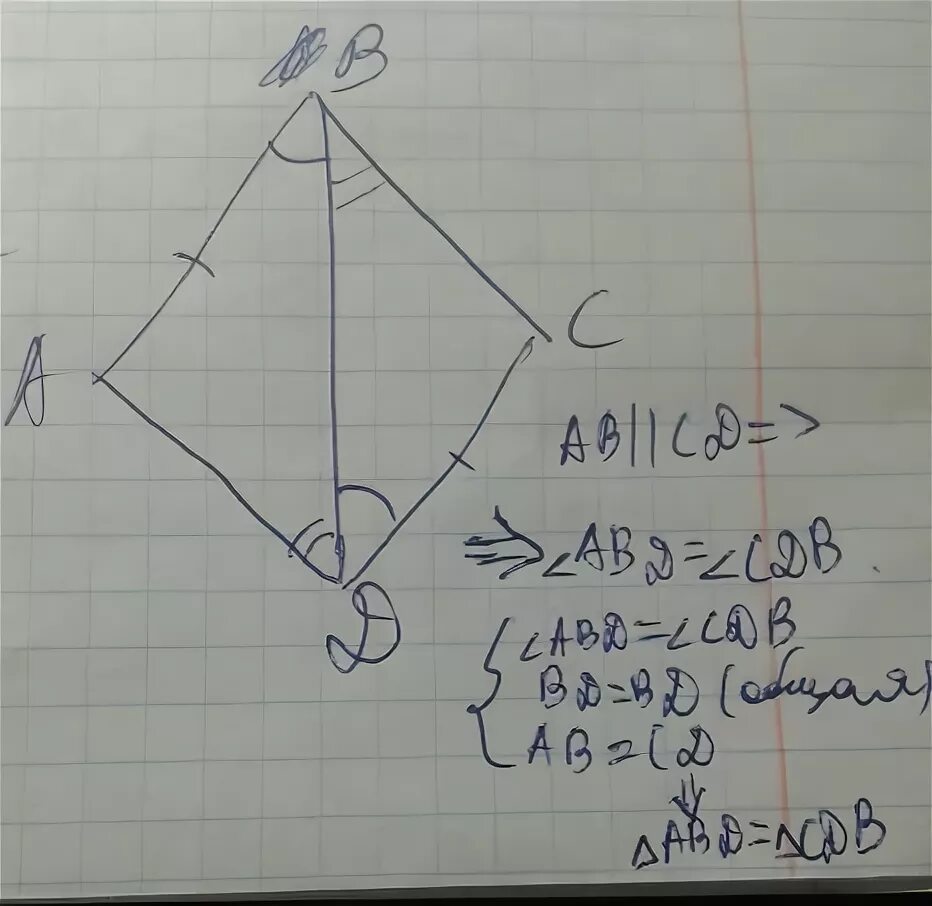 B
A
C
D
AB||CD=>
=>∠ABD=∠CDB.
∠ABD=∠CDB
BD=BD (общая)
AB=CD
⇓
ΔABD=ΔCDB